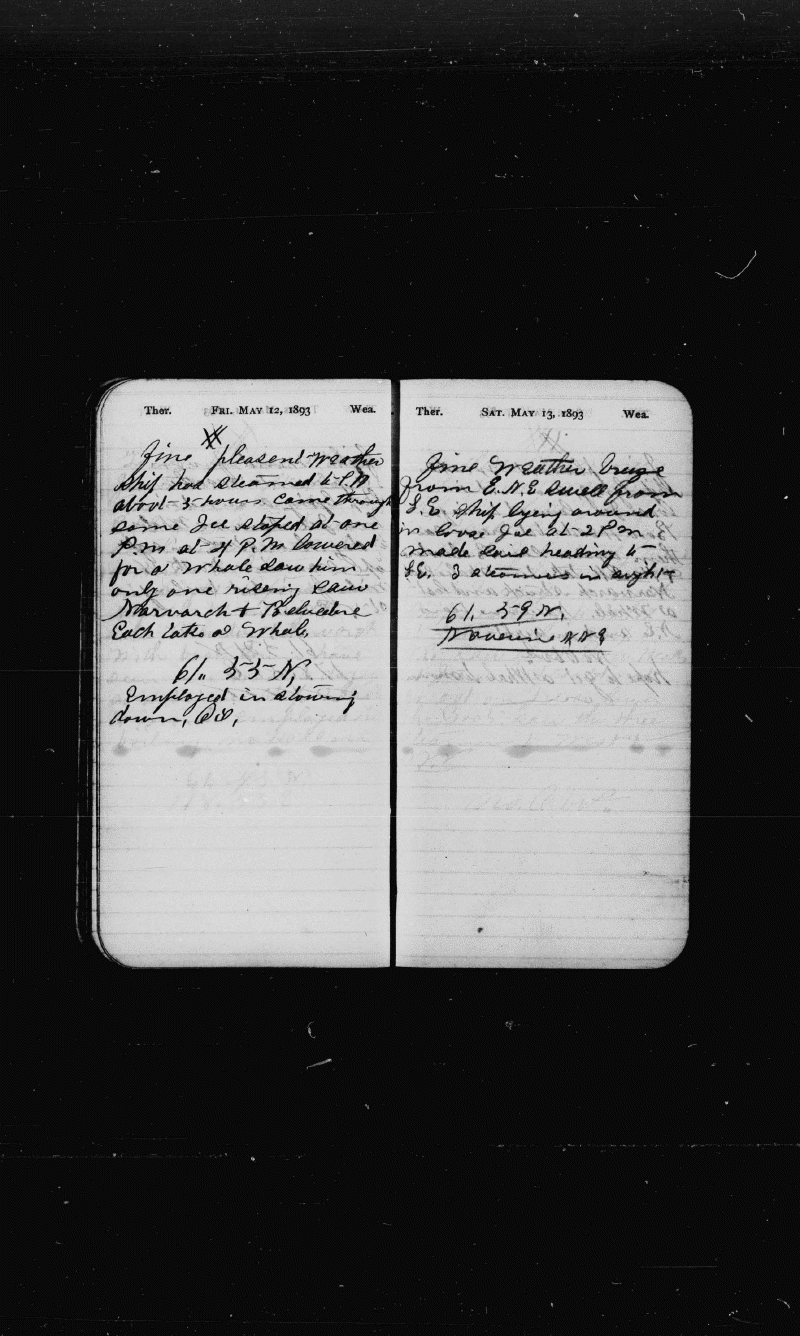 Ther. FRI. MAY 12, 1893 Wea.
Fine pleasent weather
ship has steamed to P.M
about 3 hours came through
some Ice stoped at one
P.M at 4 P.M lowered
for a Whale saw him
only one rising saw
Narvarch & Belvedere
Each take a Whale,
61. 55 N,
Employed in stowing
down,
Ther. SAT. MAY 13, 1893 Wea.
Fine Weather
from E.N.E swell from
S.E. Ship lying around
in loose Ice at 2 P m
made sail heading to
SE. 3 steamers in sight
61. 59 N.